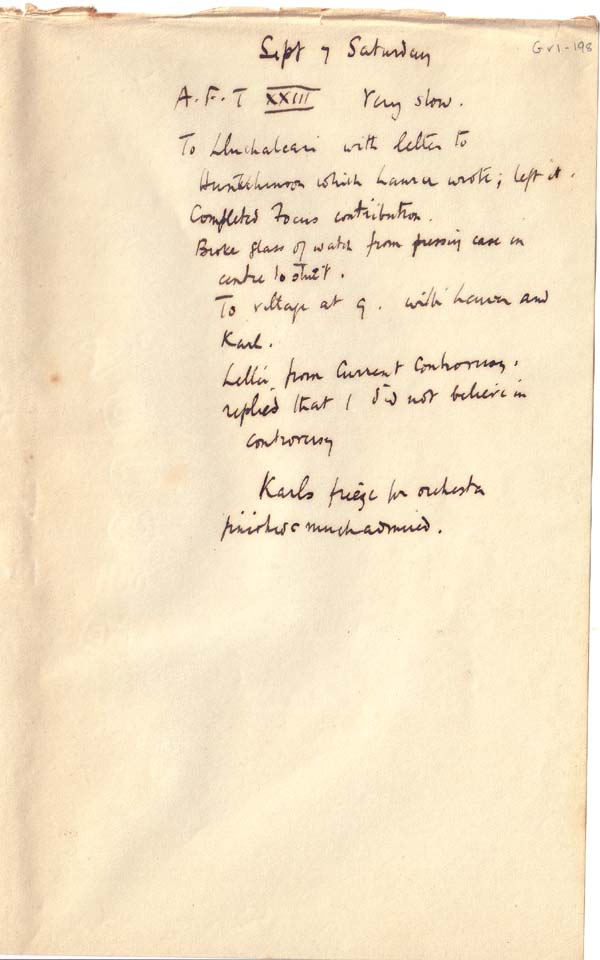 GVI-198
Sept 7 Saturday
A.F.T XXIII Very slow.
To Lluchalcari with letter to
which Laura wrote; left it.
Completed Focus contribution.
Broke glass of watch from pressing case in
centre to shut it.
To village at 9. with Laura and
Karl.
Letter from Current Controversy,
replied that I did not believe in
controversy
Karls frieze for orchestra
finished & much admired.